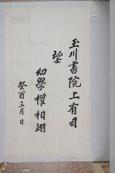 玉川書院上有司
望
幼學權相翊
癸酉三月 日